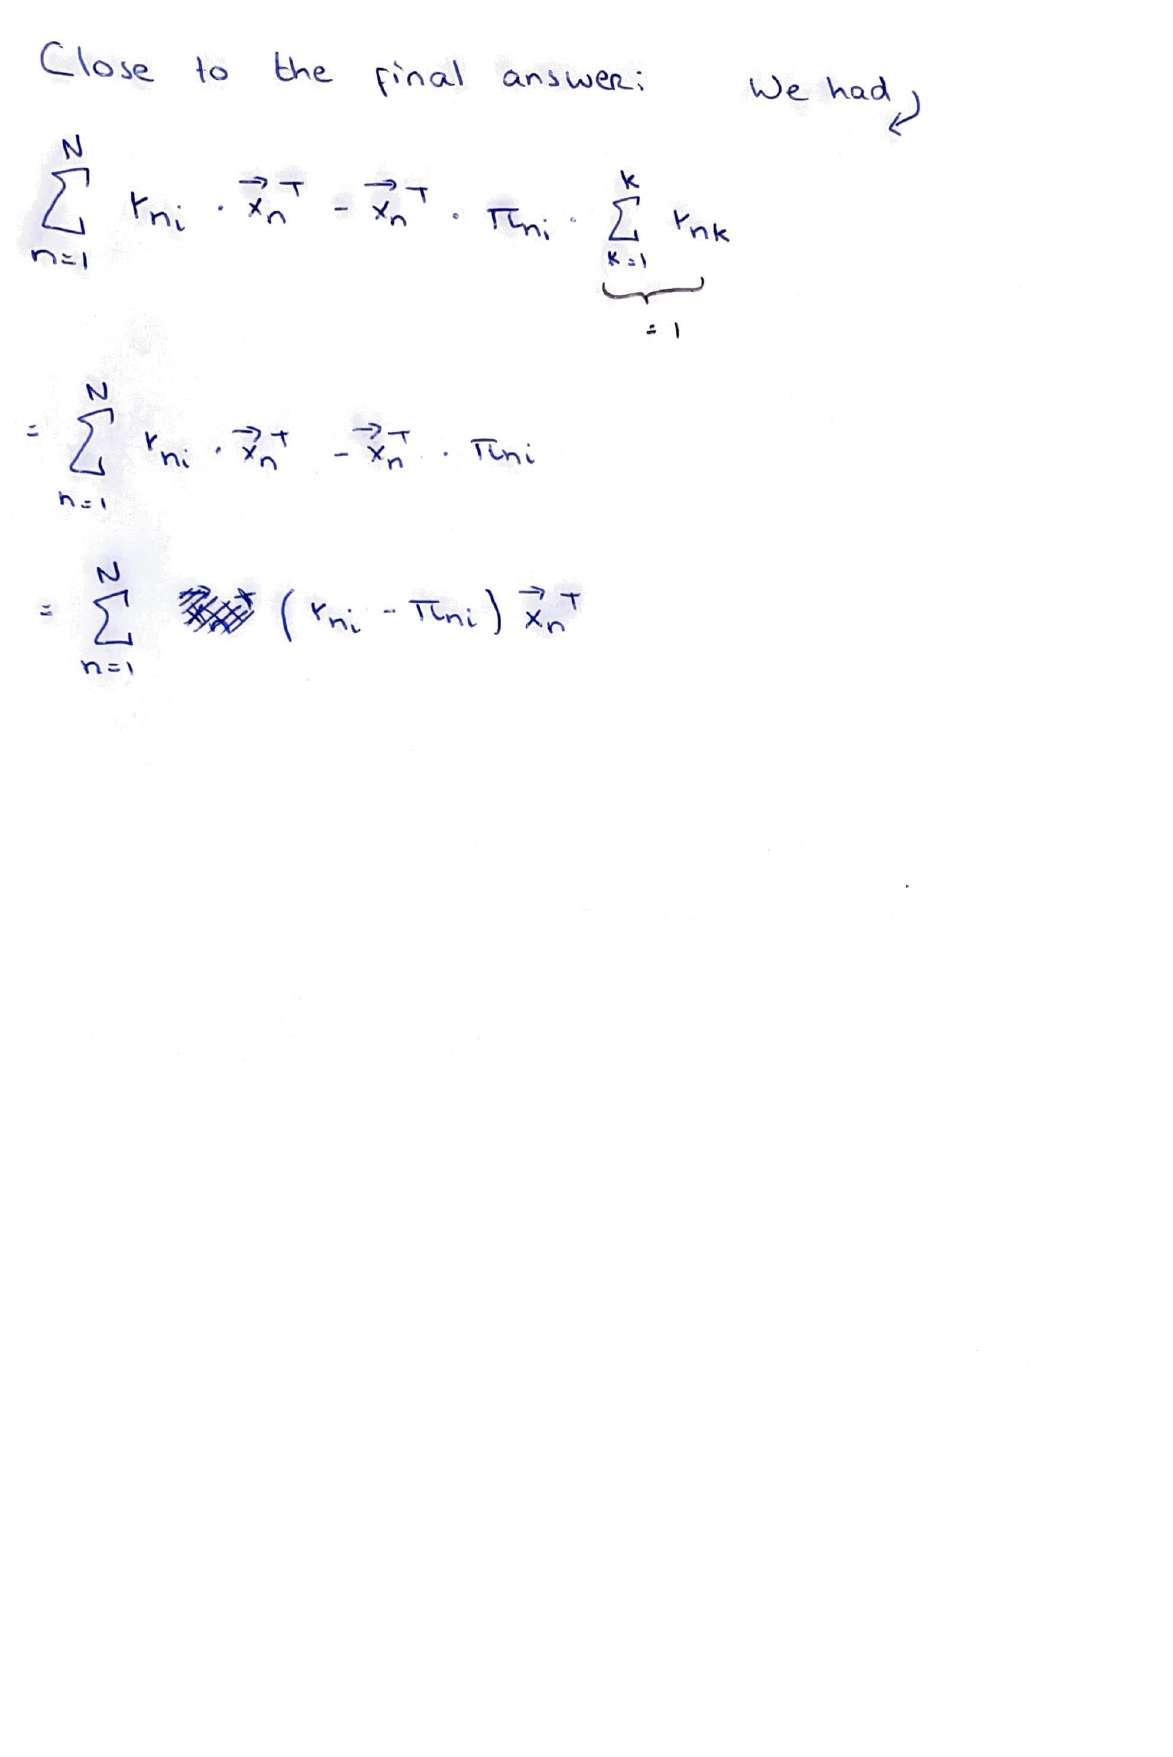 Close to the final answer: We had
$\sum_{n=1}^{N} r_{ni} \cdot \vec{x}_n^T - \vec{x}_n^T \cdot \pi_{ni} \cdot \underbrace{\sum_{k=1}^{K} r_{nk}}_{=1}$
$= \sum_{n=1}^{N} r_{ni} \cdot \vec{x}_n^T - \vec{x}_n^T \cdot \pi_{ni}$
$= \sum_{n=1}^{N} (r_{ni} - \pi_{ni}) \vec{x}_n^T$